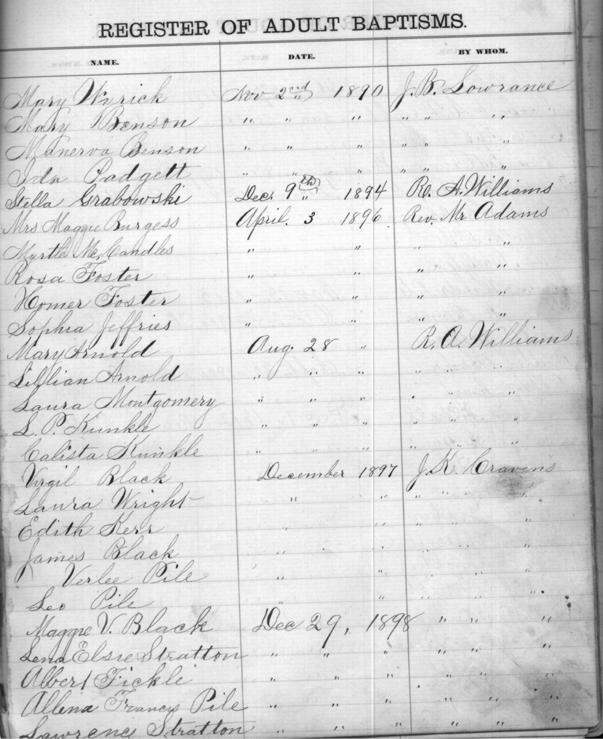 REGISTER OF ADULT BAPTISMS.
NAME. DATE. BY WHOM.
Mary Wyrick Nov 2nd 1890 J. B. Lowrance
Mary Benson " " " " " "
Minerva Benson " " " " " "
Ida Padgett " " " " " "
Stella Grabowski Dec. 9th " 1894 R. A. Williams
Mrs Maggie Burgess April. 3 1896 Rev. Mr Adams
Myrtle Mc.Candles " " " "
Rosa Foster " " " "
Homer Foster " " " "
Sophia Jeffries " " "
Mary Arnold Aug 28 " R. A. Williams
Lillian Arnold " " " " " "
Laura Montgomery " " " " " "
L. P. Kunkle " " " " " "
Calista Kunkle " " " " " "
Virgil Black December 1897 J. K. Cravens
Laura Wright " " " " "
Edith Kerr " " " " "
James Black " " " " "
Verlee Pile " " " " "
Leo Pile " " " " "
Maggie V. Black Dec 29, 1898 " " "
Lena Elsie Stratton " " " " " "
Albert Fickle " " " " " "
Allena Frances Pile " " " " " "
Lawrence Stratton " " " " " "